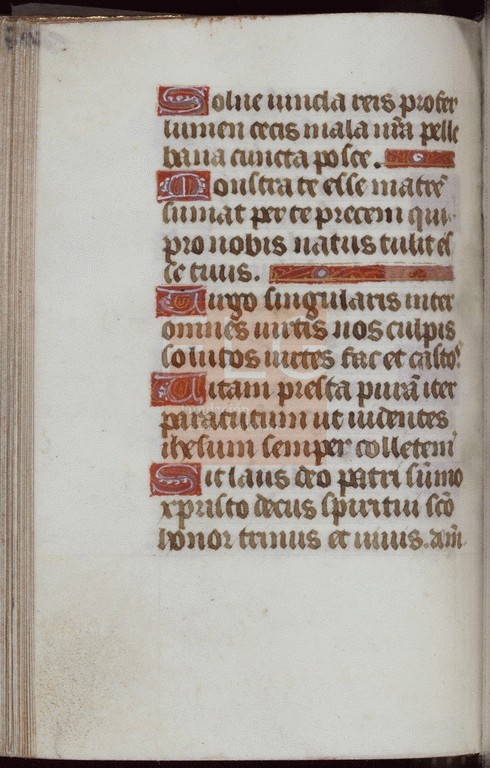 Solue uincla reis profer
lumen cecis mala nr̃a pelle
bona cuncta posce.
Monstra te esse matrẽ
sumat per te precem qui
pro nobis natus tulit es
se tuus.
Uirgo singularis inter
omnes mitis nos culpis
solutos mites fac et castos
Uitam presta purã iter
para tutum ut uidentes
ihesum semper colletem̃
Sit laus deo patri sũmo
xpristo decus spiritui scõ
honor trinus et unus. am̃